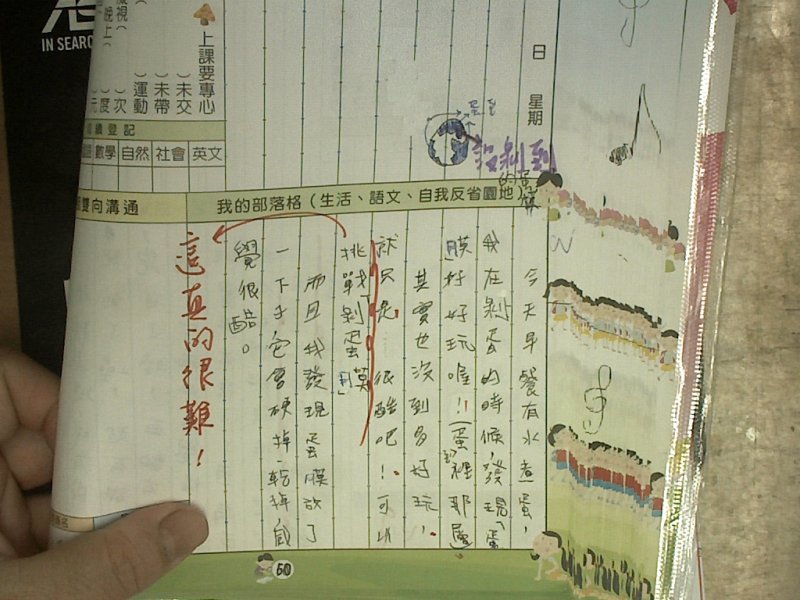 IN SEARC
日 星期
沒剝到
的蛋
上課要專心
未交
未帶
運動
次
度
晚上
績登記
數學 自然 社會 英文
雙向溝通
我的部落格（生活、語文、自我反省園地）
今天早餐有水煮蛋，
我在剝蛋的時候，發現「蛋
膜」好好玩喔!!(蛋裡那層)
其實也沒到多好玩，
就只是很酷吧！可以
挑戰「剝蛋膜」
而且我發現蛋膜放了
一下子它會硬掉乾掉，感
覺很酷。
這真的很難！
60